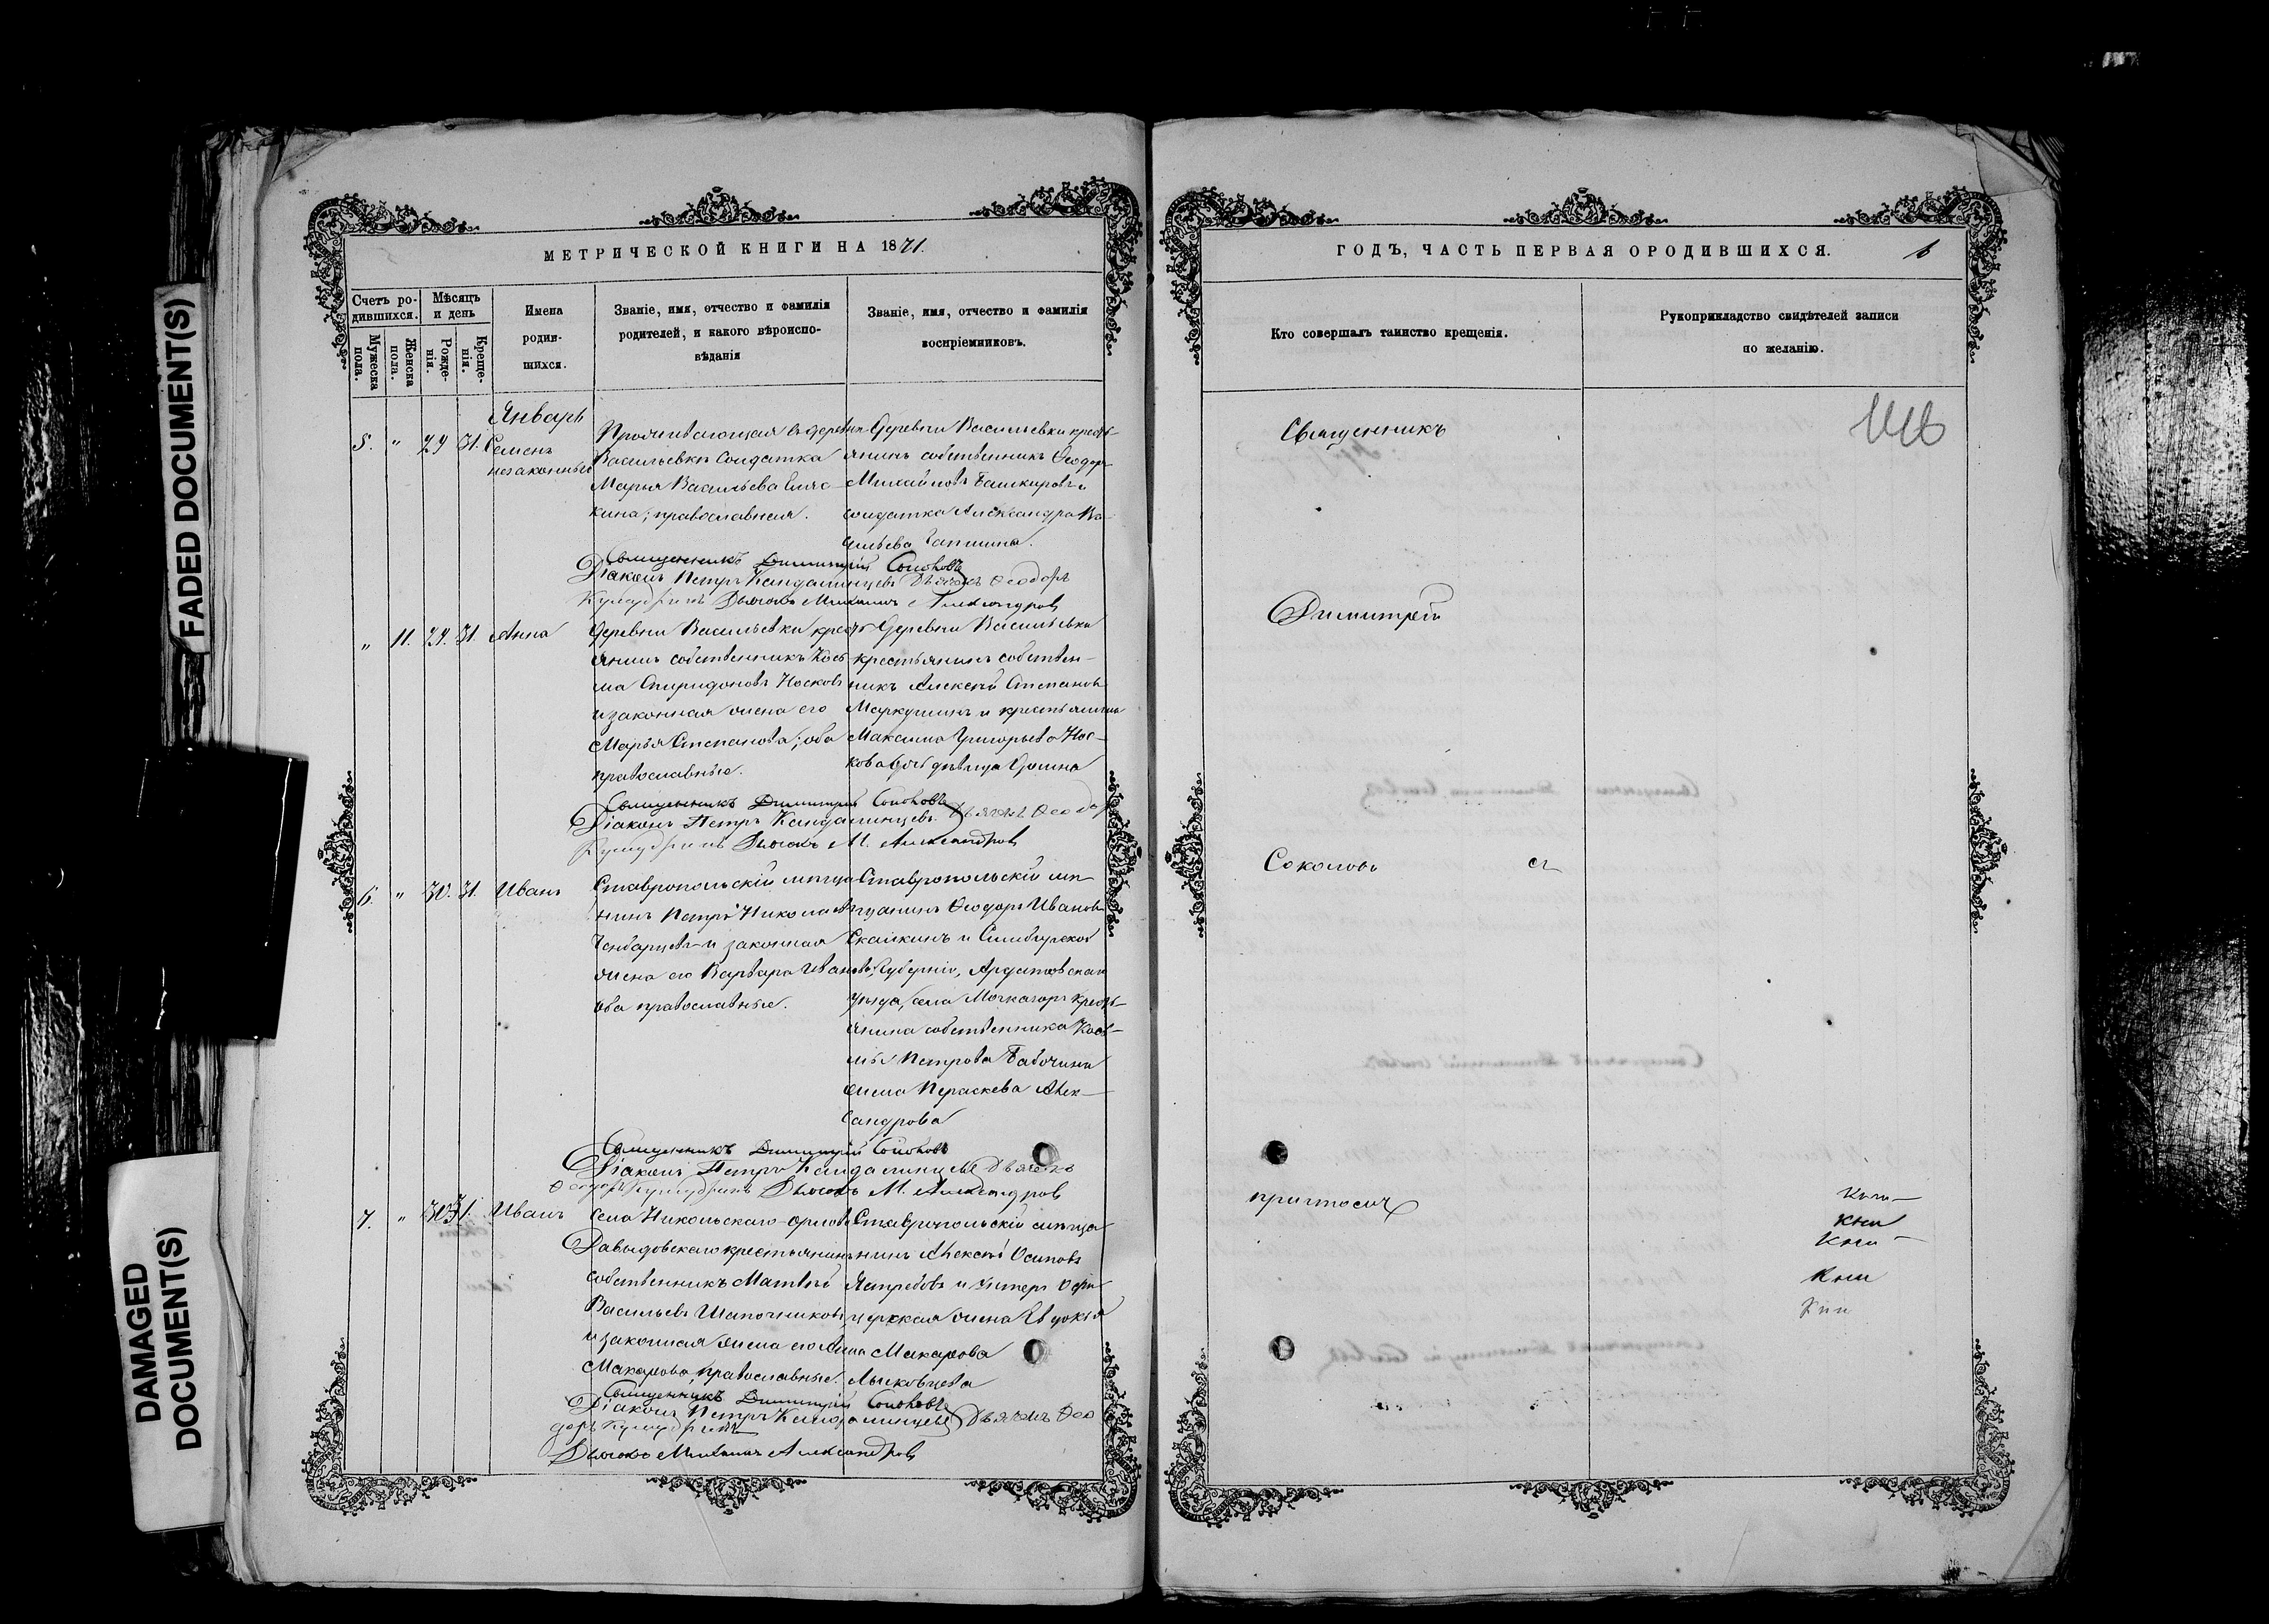 FADED DOCUMENT(S)
DAMAGED
DOCUMENT(S)
МЕТРИЧЕСКОЙ КНИГИ НА 1871.
Счетъ ро-
дившихся.
Мѣсяцъ
и день
Мужеска
пола.
Женска
пола.
Рожде-
нія.
Креще-
нія.
Имена
родив-
шихся.
Званіе, имя, отчество и фамилія
родителей, и какого вѣроиспо-
вѣданія
Званіе, имя, отчество и фамилія
воспріемниковъ.
Январь
5. " 24 31. Семенъ
незаконный
Проживающая въ деревнѣ
Васильевкѣ Солдатка
Марья Васильева
кина; православная.
Деревни Васильевки кресть-
янинъ собственникъ Ѳеодоръ
Михайловъ Башкировъ и
солдатка Александра Ва-
сильева
Священникъ Димитрій Соколовъ
Діаконъ Петръ Кандалинцевъ Дьячекъ Ѳеодоръ
Дьячокъ Михаилъ Александровъ
" 11. 24. 31. Анна
Деревни Васильевки кресть-
янинъ собственникъ Кось-
ма Спиридоновъ Носковъ
и законная жена его
Марья Степанова; оба
православные.
Деревни Васильевки
крестьянинъ собствен-
никъ Алексѣй Степановъ
Маркушинъ и крестьянина
Максима Григорьева Нос-
кова дочь дѣвица
Священникъ Димитрій Соколовъ
Діаконъ Петръ Кандалинцевъ. Дьячекъ Ѳеодоръ
Дьячокъ М. Александровъ
6. " 30. 31. Иванъ
Ставропольскій мѣща-
нинъ Петръ Николаевъ
и законная
жена его Варвара Иванова,
оба православные.
Ставропольскій мѣ-
щанинъ Ѳеодоръ Ивановъ
Скалкинъ и Симбирской
Губерніи, Ардатовскаго
уѣзда, села кресть-
янина собственника Кось-
мы Петрова Бабочкина
жена Пераскева Алек-
сандрова
Священникъ Димитрій Соколовъ
Діаконъ Петръ Кандалинцевъ Дьячекъ
Ѳеодоръ Дьячокъ М. Александровъ
7. " 30. 31. Иванъ
Села Никольскаго
Давыдовскаго крестьянинъ
собственникъ Матвѣй
Васильевъ Шапочниковъ
и законная жена его Анна
Макарова, православные.
Ставропольскій мѣща-
нинъ Алексѣй Осиповъ
Ястребовъ и Унтеръ Офи-
церская жена Евдокія
Макарова
Священникъ Димитрій Соколовъ
Діаконъ Петръ Кандалинцевъ Дьячекъ Ѳео
доръ
Дьячокъ Михаилъ Александровъ
ГОДЪ, ЧАСТЬ ПЕРВАЯ О РОДИВШИХСЯ.
6
Кто совершалъ таинство крещенія.
Рукоприкладство свидѣтелей записи
по желанію.
Священникъ
Димитрій
Соколовъ съ
причтомъ